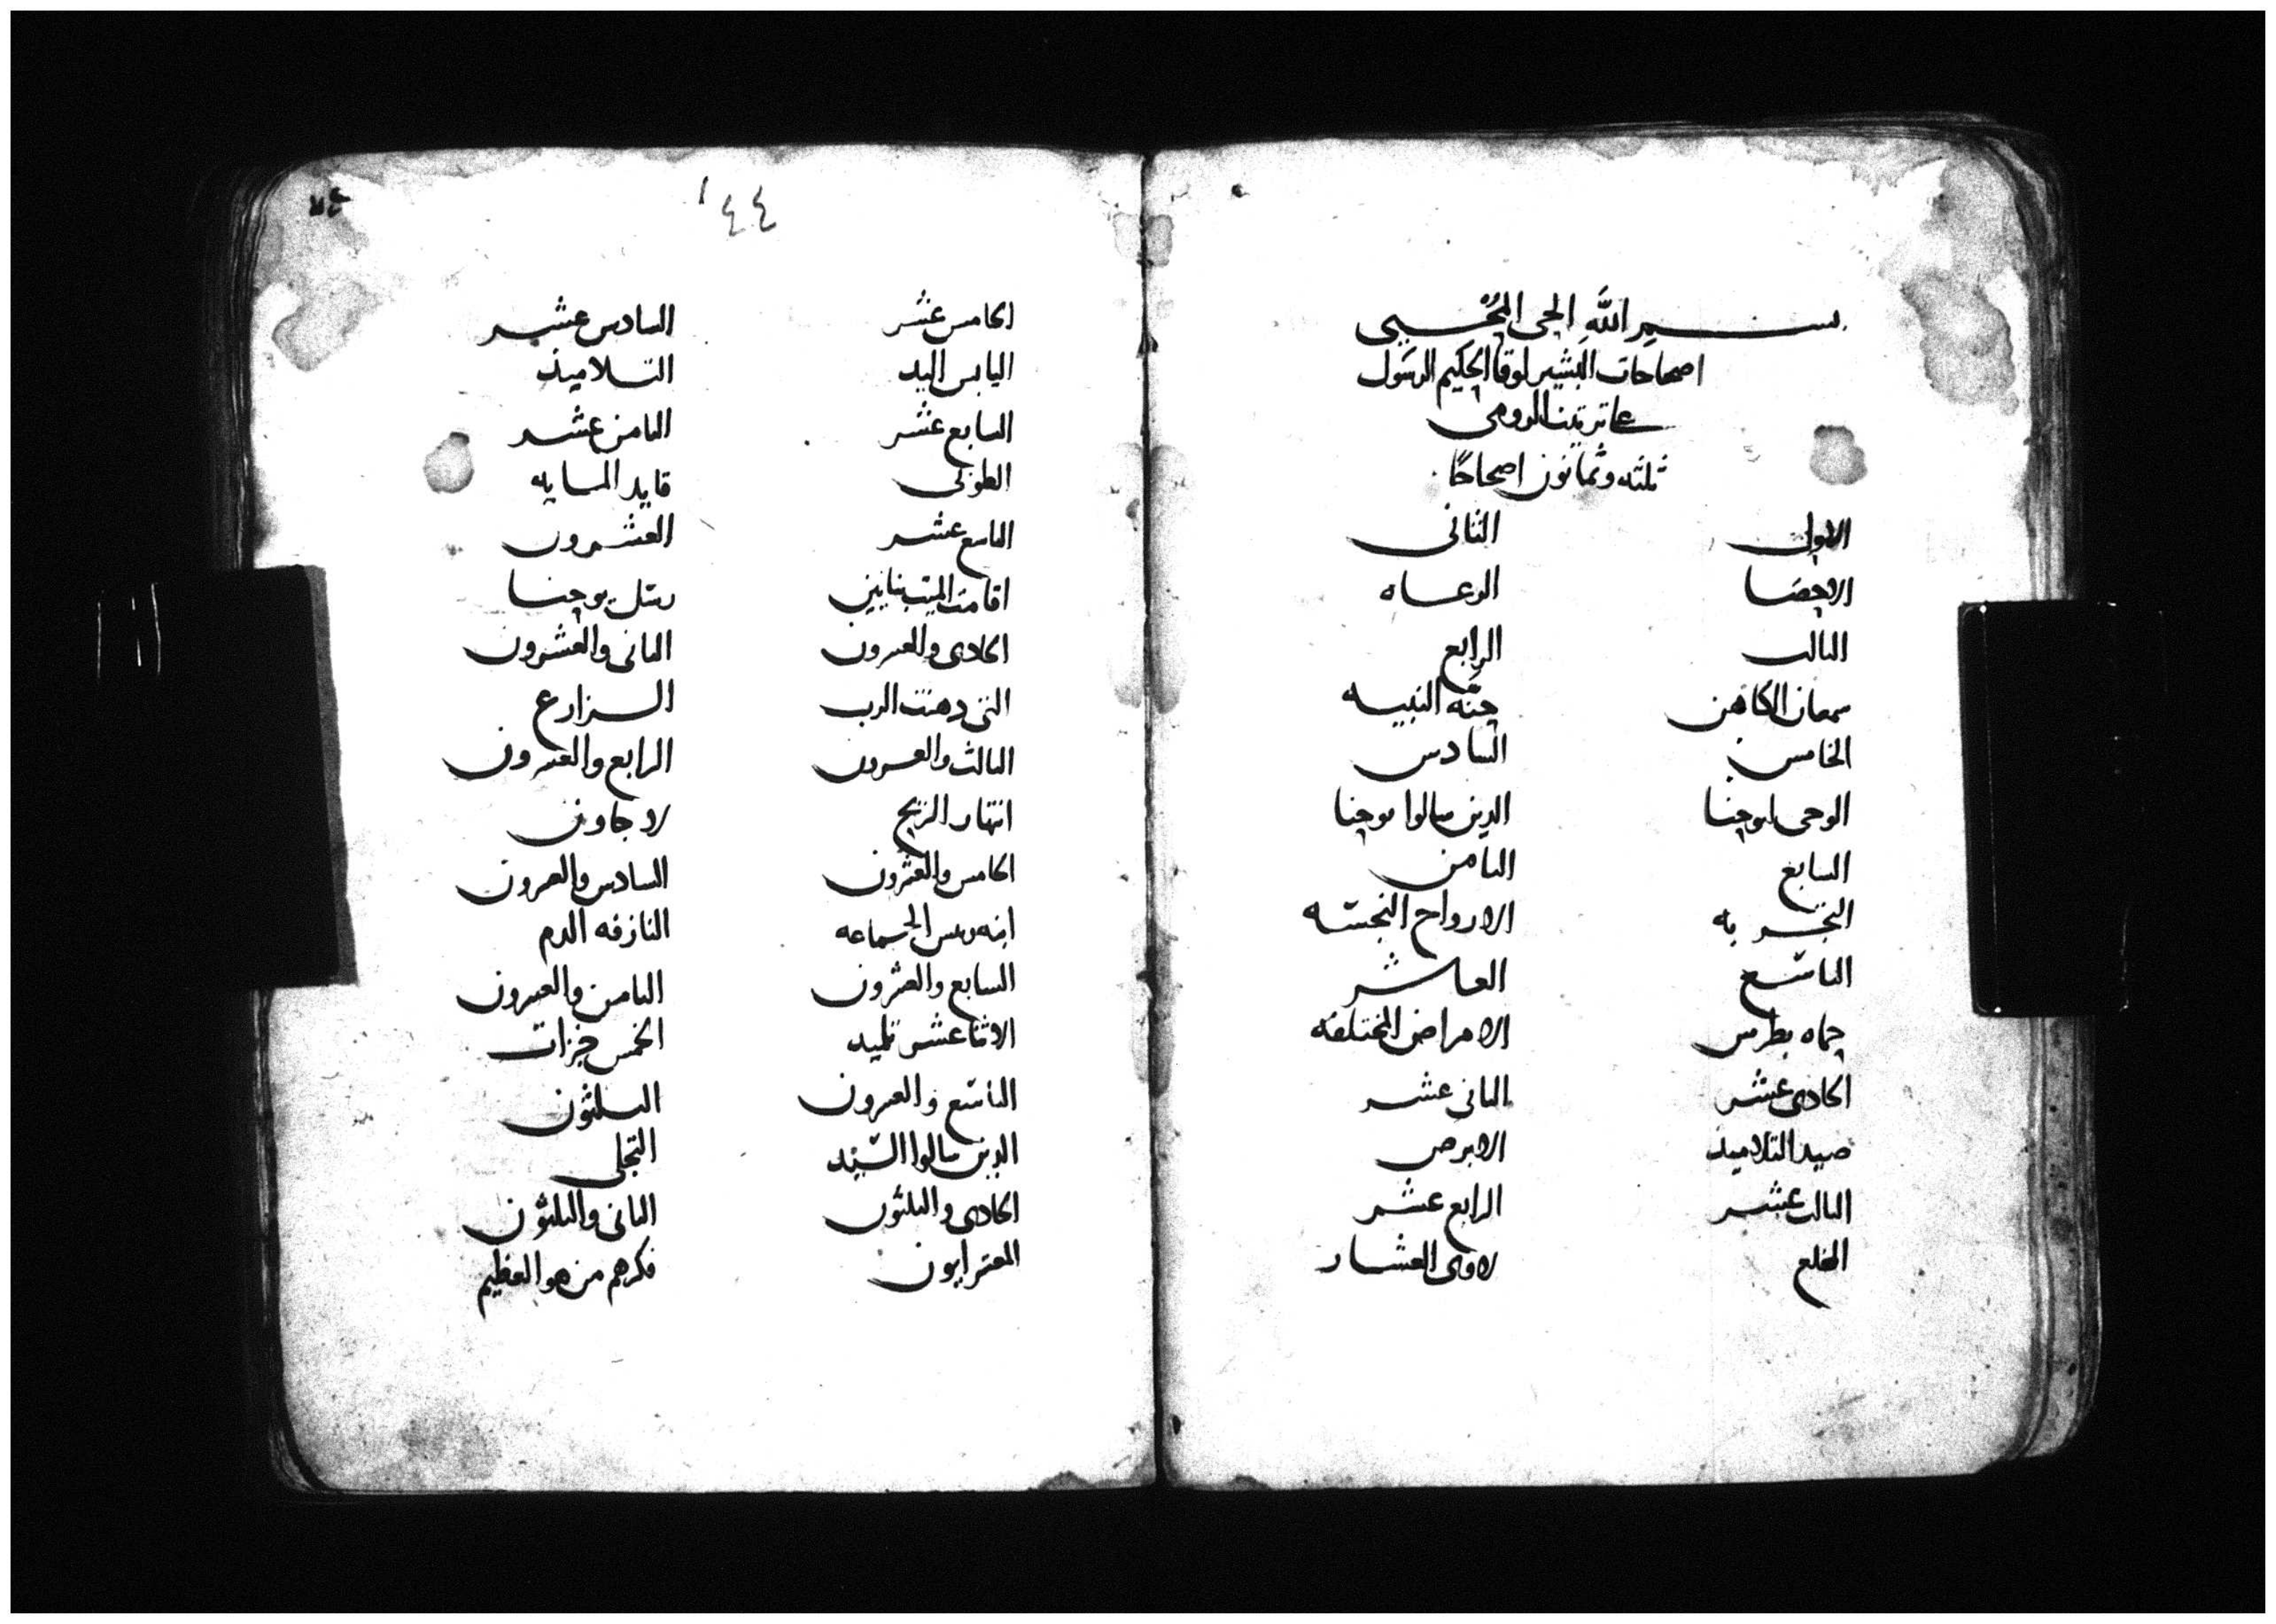 بسم الله الحي المحيي
اصحاحات البشير لوقا الحكيم الرسول
على ترتيب الرومي
ثلثه وثمانون اصحاحًا
الاول الثاني
الاحصا الرعاه
الثالث الرابع
سمعان الكاهن حنّه النبيه
الخامس السادس
الوحي ليوحنا الذين سالوا يوحنا
السابع الثامن
التجربه الارواح النجسه
التاسع العاشر
حماه بطرس الامراض المختلفه
الحادي عشر الثاني عشر
صيد التلاميذ الابرص
الثالث عشر الرابع عشر
المخلع لاوي العشار
١٤٤
الخامس عشر السادس عشر
اليابس اليد التلاميذ
السابع عشر الثامن عشر
الطوبى قايد المايه
التاسع عشر العشرون
اقامت الميت بنايين رسل يوحنا
الحادي والعشرون الثاني والعشرون
التي دهنت الرب الزارع
الثالث والعشرون الرابع والعشرون
انتهار الريح لاجاون
الخامس والعشرون السادس والعشرون
ابنه ريس الجماعه النازفه الدم
السابع والعشرون الثامن والعشرون
الاثنا عشر تلميد الخمس خبزات
التاسع والعشرون الثلثون
الذين سالوا السيّد التجلي
الحادي والثلثون الثاني والثلثون
المعترايون فكرهم من هو العظيم